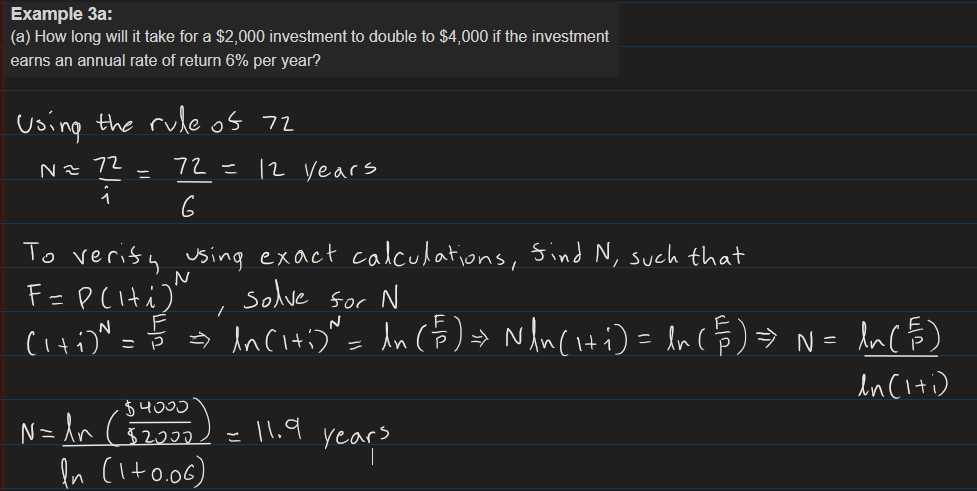 Example 3a:
(a) How long will it take for a $2,000 investment to double to $4,000 if the investment
earns an annual rate of return 6% per year?
Using the rule of 72
N ≈ 72/i = 72/6 = 12 years
To verify using exact calculations, find N, such that
F = P(1+i)^N , solve for N
(1+i)^N = F/P ⇒ ln(1+i)^N = ln(F/P) ⇒ N ln(1+i) = ln(F/P) ⇒ N = ln(F/P)/ln(1+i)
N = ln($4000/$2000)/ln(1+0.06) = 11.9 years